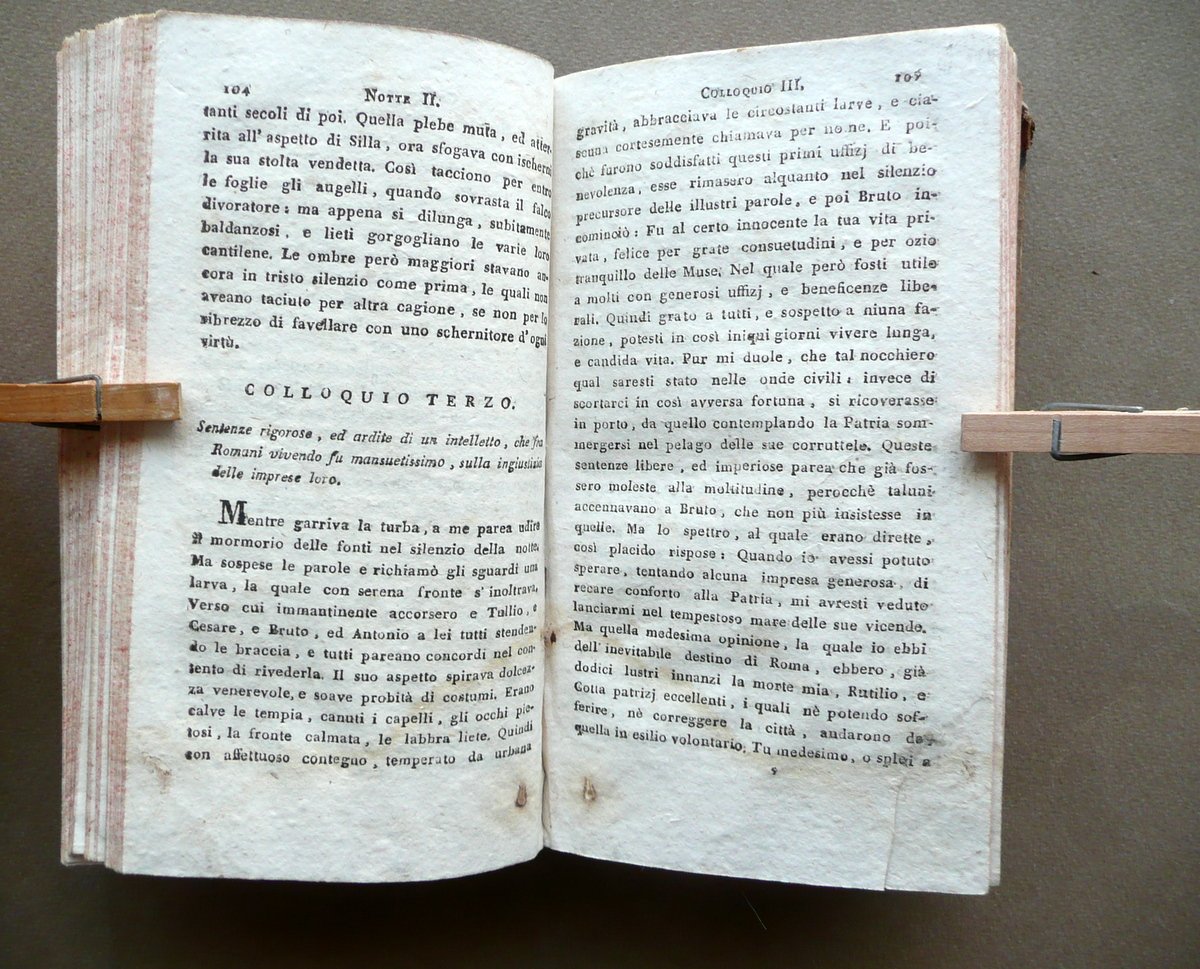 104 NOTTE II.
tanti secoli di poi. Quella plebe muta, ed atter-
rita all' aspetto di Silla, ora sfogava con ischerni
la sua stolta vendetta. Così tacciono per entro
le foglie gli augelli, quando sovrasta il falco
divoratore: ma appena si dilunga, subitamente
baldanzosi, e lieti gorgogliano le varie loro
cantilene. Le ombre però maggiori stavano an-
cora in tristo silenzio come prima, le quali non
aveano taciute per altra cagione, se non per lo
ribrezzo di favellare con uno schernitore d' ogni
virtù.
COLLOQUIO TERZO.
Sentenze rigorose, ed ardite di un intelletto, che fra
Romani vivendo fu mansuetissimo, sulla ingiustizia
delle imprese loro.
Mentre garriva la turba, a me parea udire
il mormorio delle fonti nel silenzio della notte.
Ma sospese le parole e richiamò gli sguardi una
larva, la quale con serena fronte s' inoltrava.
Verso cui immantinente accorsero e Tullio, e
Cesare, e Bruto, ed Antonio a lei tutti stenden-
do le braccia, e tutti pareano concordi nel con-
tento di rivederla. Il suo aspetto spirava dolcez-
za venerevole, e soave probità di costumi. Erano
calve le tempia, canuti i capelli, gli occhi pie-
tosi, la fronte calmata, le labbra liete. Quindi
con affettuoso contegno, temperato da urbana
COLLOQUIO III. 105
gravità, abbracciava le circostanti larve, e cia-
scuna cortesemente chiamava per nome. E poi-
chè furono soddisfatti questi primi uffizj di be-
nevolenza, esse rimasero alquanto nel silenzio
precursore delle illustri parole, e poi Bruto in-
cominciò: Fu al certo innocente la tua vita pri-
vata, felice per grate consuetudini, e per ozio
tranquillo delle Muse. Nel quale però fosti utile
a molti con generosi uffizj, e beneficenze libe-
rali. Quindi grato a tutti, e sospetto a niuna fa-
zione, potesti in così iniqui giorni vivere lunga,
e candida vita. Pur mi duole, che tal nocchiero
qual saresti stato nelle onde civili: invece di
scortarci in così avversa fortuna, si ricoverasse
in porto, da quello contemplando la Patria som-
mergersi nel pelago delle sue corruttele. Queste
sentenze libere, ed imperiose parea che già fos-
sero moleste alla moltitudine, perocchè taluni
accennavano a Bruto, che non più insistesse in
quelle. Ma lo spettro, al quale erano dirette,
così placido rispose: Quando io avessi potuto
sperare, tentando alcuna impresa generosa, di
recare conforto alla Patria, mi avresti veduto
lanciarmi nel tempestoso mare delle sue vicende.
Ma quella medesima opinione, la quale io ebbi
dell' inevitabile destino di Roma, ebbero, già
dodici lustri innanzi la morte mia, Rutilio, e
Cotta patrizj eccellenti, i quali nè potendo sof-
ferire, nè correggere la città, andarono da
quella in esilio volontario. Tu medesimo, o